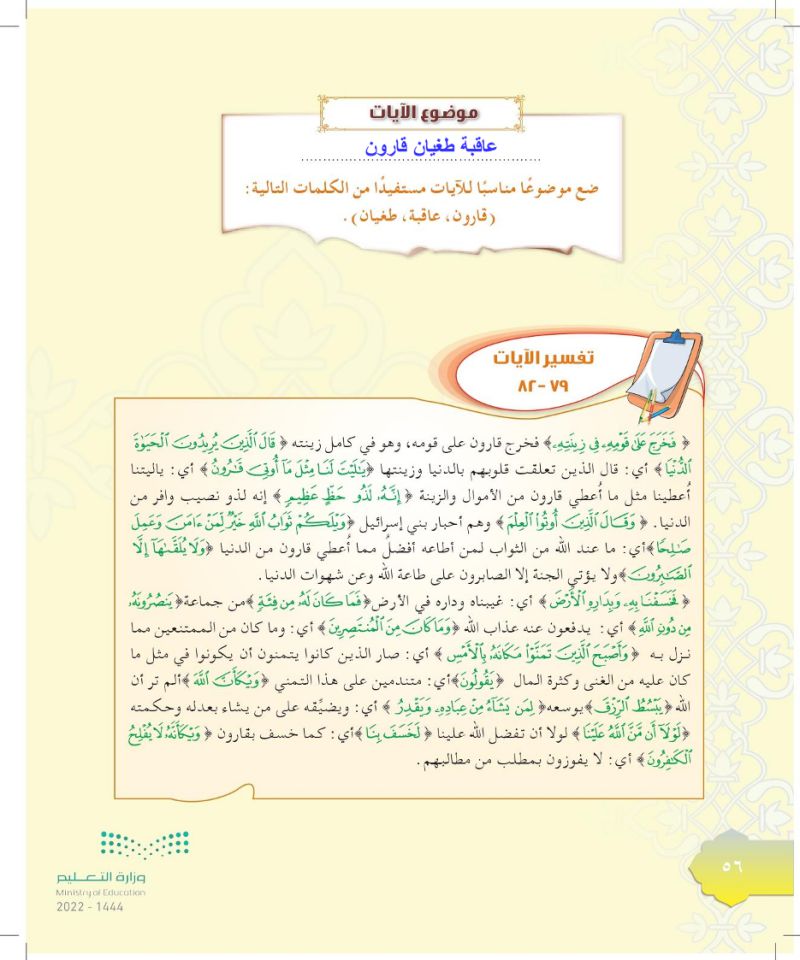 موضوع الآيات
عاقبة طغيان قارون
ضع موضوعًا مناسبًا للآيات مستفيدًا من الكلمات التالية:
(قارون، عاقبة، طغيان).
تفسير الآيات
٧٩ -٨٢
﴿ فَخَرَجَ عَلَىٰ قَوْمِهِۦ فِى زِينَتِهِۦ﴾ فخرج قارون على قومه، وهو في كامل زينته ﴿ قَالَ ٱلَّذِينَ يُرِيدُونَ ٱلْحَيَوٰةَ
ٱلدُّنْيَا﴾ أي: قال الذين تعلقت قلوبهم بالدنيا وزينتها ﴿يَٰلَيْتَ لَنَا مِثْلَ مَآ أُوتِىَ قَٰرُونُ﴾ أي: ياليتنا
أُعطينا مثل ما أُعطي قارون من الأموال والزينة ﴿ إِنَّهُۥ لَذُو حَظٍّ عَظِيمٍ ﴾ إنه لذو نصيب وافر من
الدنيا. ﴿ وَقَالَ ٱلَّذِينَ أُوتُوا۟ ٱلْعِلْمَ ﴾ وهم أحبار بني إسرائيل ﴿وَيْلَكُمْ ثَوَابُ ٱللَّهِ خَيْرٌ لِّمَنْ ءَامَنَ وَعَمِلَ
صَٰلِحًا﴾أي: ما عند الله من الثواب لمن أطاعه أفضلُ مما أُعطي قارون من الدنيا ﴿وَلَا يُلَقَّىٰهَآ إِلَّا
ٱلصَّٰبِرُونَ﴾ولا يؤتي الجنة إلا الصابرون على طاعة الله وعن شهوات الدنيا.
﴿ فَخَسَفْنَا بِهِۦ وَبِدَارِهِ ٱلْأَرْضَ ﴾ أي: غيبناه وداره في الأرض﴿فَمَا كَانَ لَهُۥ مِن فِئَةٍ ﴾من جماعة﴿يَنصُرُونَهُۥ
مِن دُونِ ٱللَّهِ﴾ أي: يدفعون عنه عذاب الله ﴿وَمَا كَانَ مِنَ ٱلْمُنتَصِرِينَ﴾ أي: وما كان من الممتنعين مما
نزل به ﴿ وَأَصْبَحَ ٱلَّذِينَ تَمَنَّوْا۟ مَكَانَهُۥ بِٱلْأَمْسِ ﴾ أي: صار الذين كانوا يتمنون أن يكونوا في مثل ما
كان عليه من الغنى وكثرة المال ﴿يَقُولُونَ﴾أي: متندمين على هذا التمني ﴿وَيْكَأَنَّ ٱللَّهَ ﴾ألم تر أن
الله﴿يَبْسُطُ ٱلرِّزْقَ﴾يوسعه﴿ لِمَن يَشَآءُ مِنْ عِبَادِهِۦ وَيَقْدِرُ ﴾ أي: ويضيِّقه على من يشاء بعدله وحكمته
﴿لَوْلَآ أَن مَّنَّ ٱللَّهُ عَلَيْنَا﴾ لولا أن تفضل الله علينا ﴿ لَخَسَفَ بِنَا﴾أي: كما خسف بقارون ﴿ وَيْكَأَنَّهُۥ لَا يُفْلِحُ
ٱلْكَٰفِرُونَ﴾ أي: لا يفوزون بمطلب من مطالبهم.
وزارة التعليم
Ministry of Education
2022 - 1444
٥٦